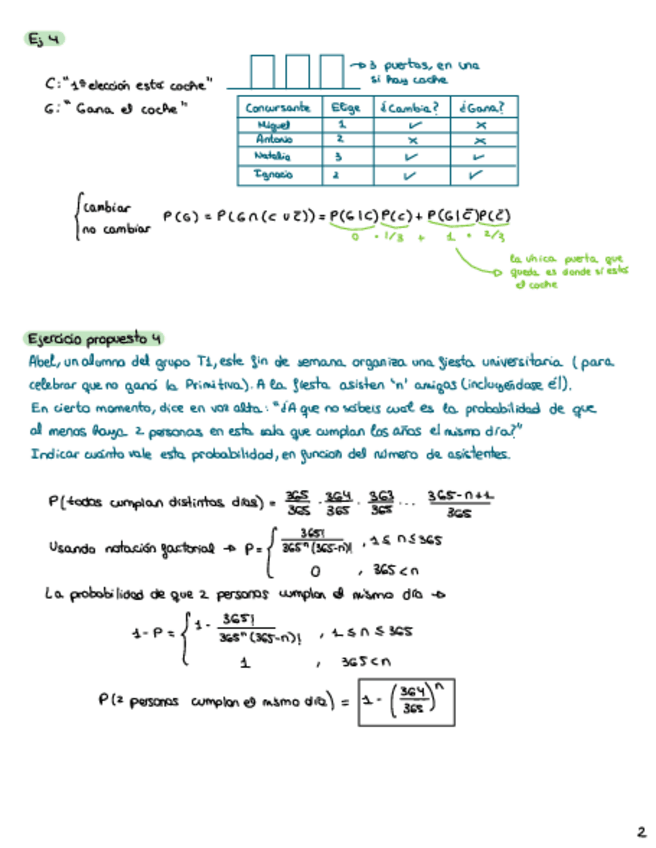 Ej 4
→ 3 puertas, en una
sí hay coche
C: "1ª elección está coche"
G: "Gana el coche"
Concursante Elige ¿Cambia? ¿Gana?
Miguel 1 ✓ ✗
Antonio 2 ✗ ✗
Natalia 3 ✓ ✓
Ignacio 2 ✓ ✓
{ cambiar
no cambiar
P(G) = P(G∩(C∪C̄)) = P(G|C)P(C) + P(G|C̄)P(C̄)
0 · 1/3 + 1 · 2/3
la única puerta que
queda es donde sí está
el coche
Ejercicio propuesto 4
Abel, un alumno del grupo T1, este fin de semana organiza una fiesta universitaria (para
celebrar que no ganó la Primitiva). A la fiesta asisten 'n' amigos (incluyéndose él).
En cierto momento, dice en voz alta: "¿A que no sabéis cual es la probabilidad de que
al menos haya 2 personas en esta sala que cumplan los años el mismo día?"
Indicar cuánto vale esta probabilidad, en función del número de asistentes.
P(todos cumplan distintos días) = 365/365 · 364/365 · 363/365 ... 365-n+1/365
Usando notación factorial → P = { 365!/365ⁿ(365-n)! , 1 ≤ n ≤ 365
0 , 365 < n
La probabilidad de que 2 personas cumplan el mismo día →
1-P = { 1 - 365!/365ⁿ(365-n)! , 1 ≤ n ≤ 365
1 , 365 < n
P(2 personas cumplan el mismo día) = 1 - (364/365)ⁿ
2